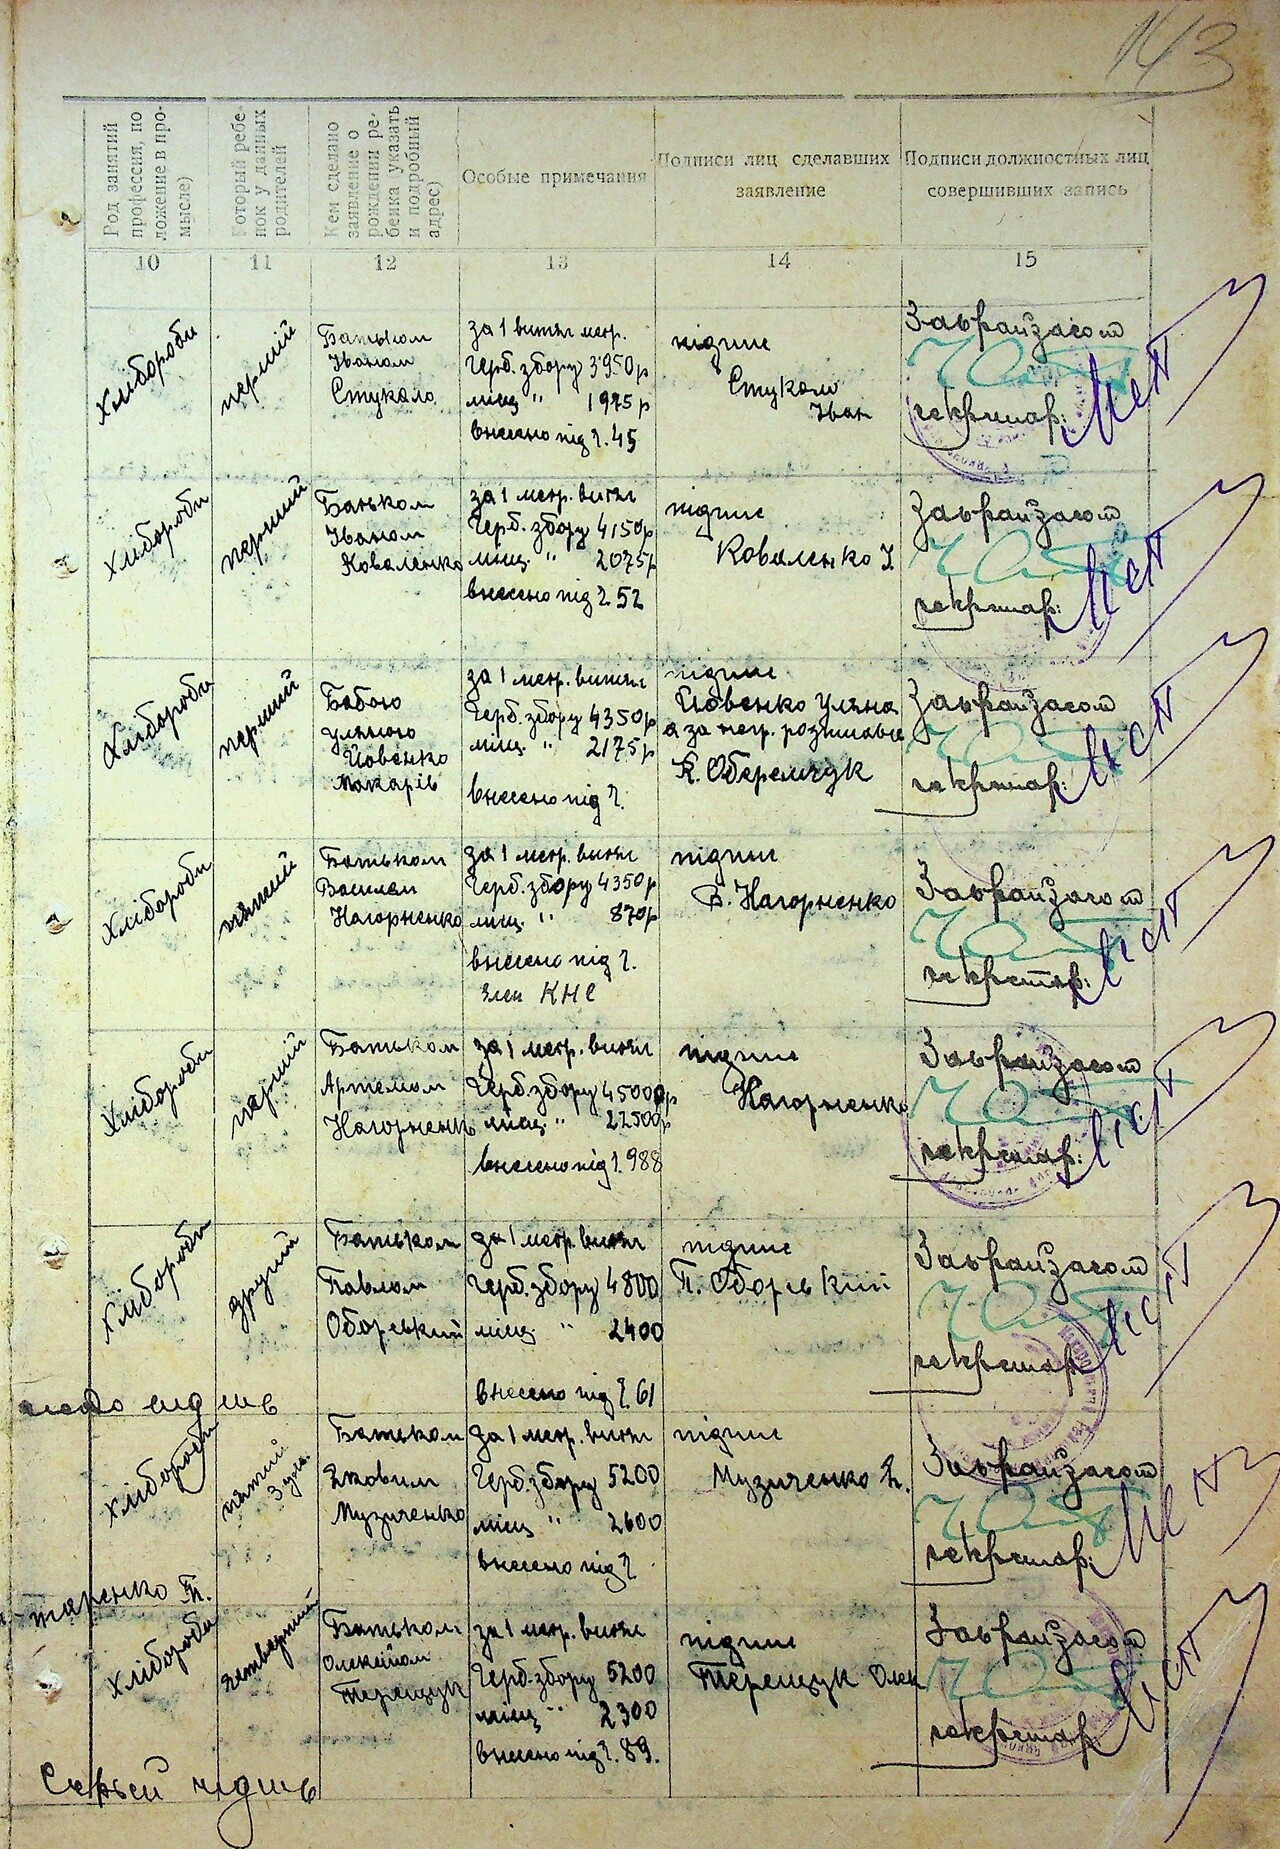 143
Род занятий
профессия, по
ложение в про-
мысле)
Который ребе-
нок у данных
родителей
Кем сделано
заявление о
рождении ре-
бенка указать
и подробный
адрес)
Особые примечания
Подписи лиц сделавших
заявление
Подписи должностных лиц
совершивших запись
10
11
12
13
14
15
Хлібороби
перший
Батьком
Іваном
Стукало
за 1 витяг метр.
Герб. збору 3950р
місц. " 1975р
внесено під ч. 45
підпис
Стукало
Іван
Завраизагом
секретар:
Хлібороби
перший
Батьком
Іваном
Коваленко
за 1 метр. витяг
Герб. збору 4150р
місц. " 2075р
внесено під ч 52
підпис
Коваленко І.
Завраизагом
секретар:
Хлібороби
перший
Бабою
Уляною
Йовенко
Макарів
за 1 метр. витяг
Герб. збору 4350р
місц. " 2175р
внесено під ч.
підпис
Йовенко Уляна
а за негр. розписавсь
К. Оберемчук
Завраизагом
секретар:
Хлібороби
пятий
Батьком
Василем
Нагорненко
за 1 метр. витяг
Герб. збору 4350р
місц. " 870р
внесено під ч.
Член КНС
підпис
В. Нагорненко
Завраизагом
секретар:
Хлібороби
перший
Батьком
Артемом
Нагорненко
за 1 метр. витяг
Герб. збору 45000р
місц. " 22500р
внесено під ч. 988
підпис
Нагорненко
Завраизагом
секретар:
Хлібороби
другий
Батьком
Павлом
Оборський
за 1 метр. витяг
Герб. збору 4800
місц. " 2400
внесено під ч. 61
підпис
П. Оборський
Завраизагом
секретар
Хлібороби
пятий
Батьком
Яковим
Музиченко
за 1 метр. витяг
Герб. збору 5200
місц " 2600
внесено під ч
підпис
Музиченко Я.
Завраизагом
секретар:
таренко П.
Хлібороби
четвертий
Батьком
Олексійом
Терещук
за 1 метр. витяг
Герб. збору 5200
місц " 2300
внесено під ч. 89.
підпис
Терещук Олек
Завраизагом
секретар